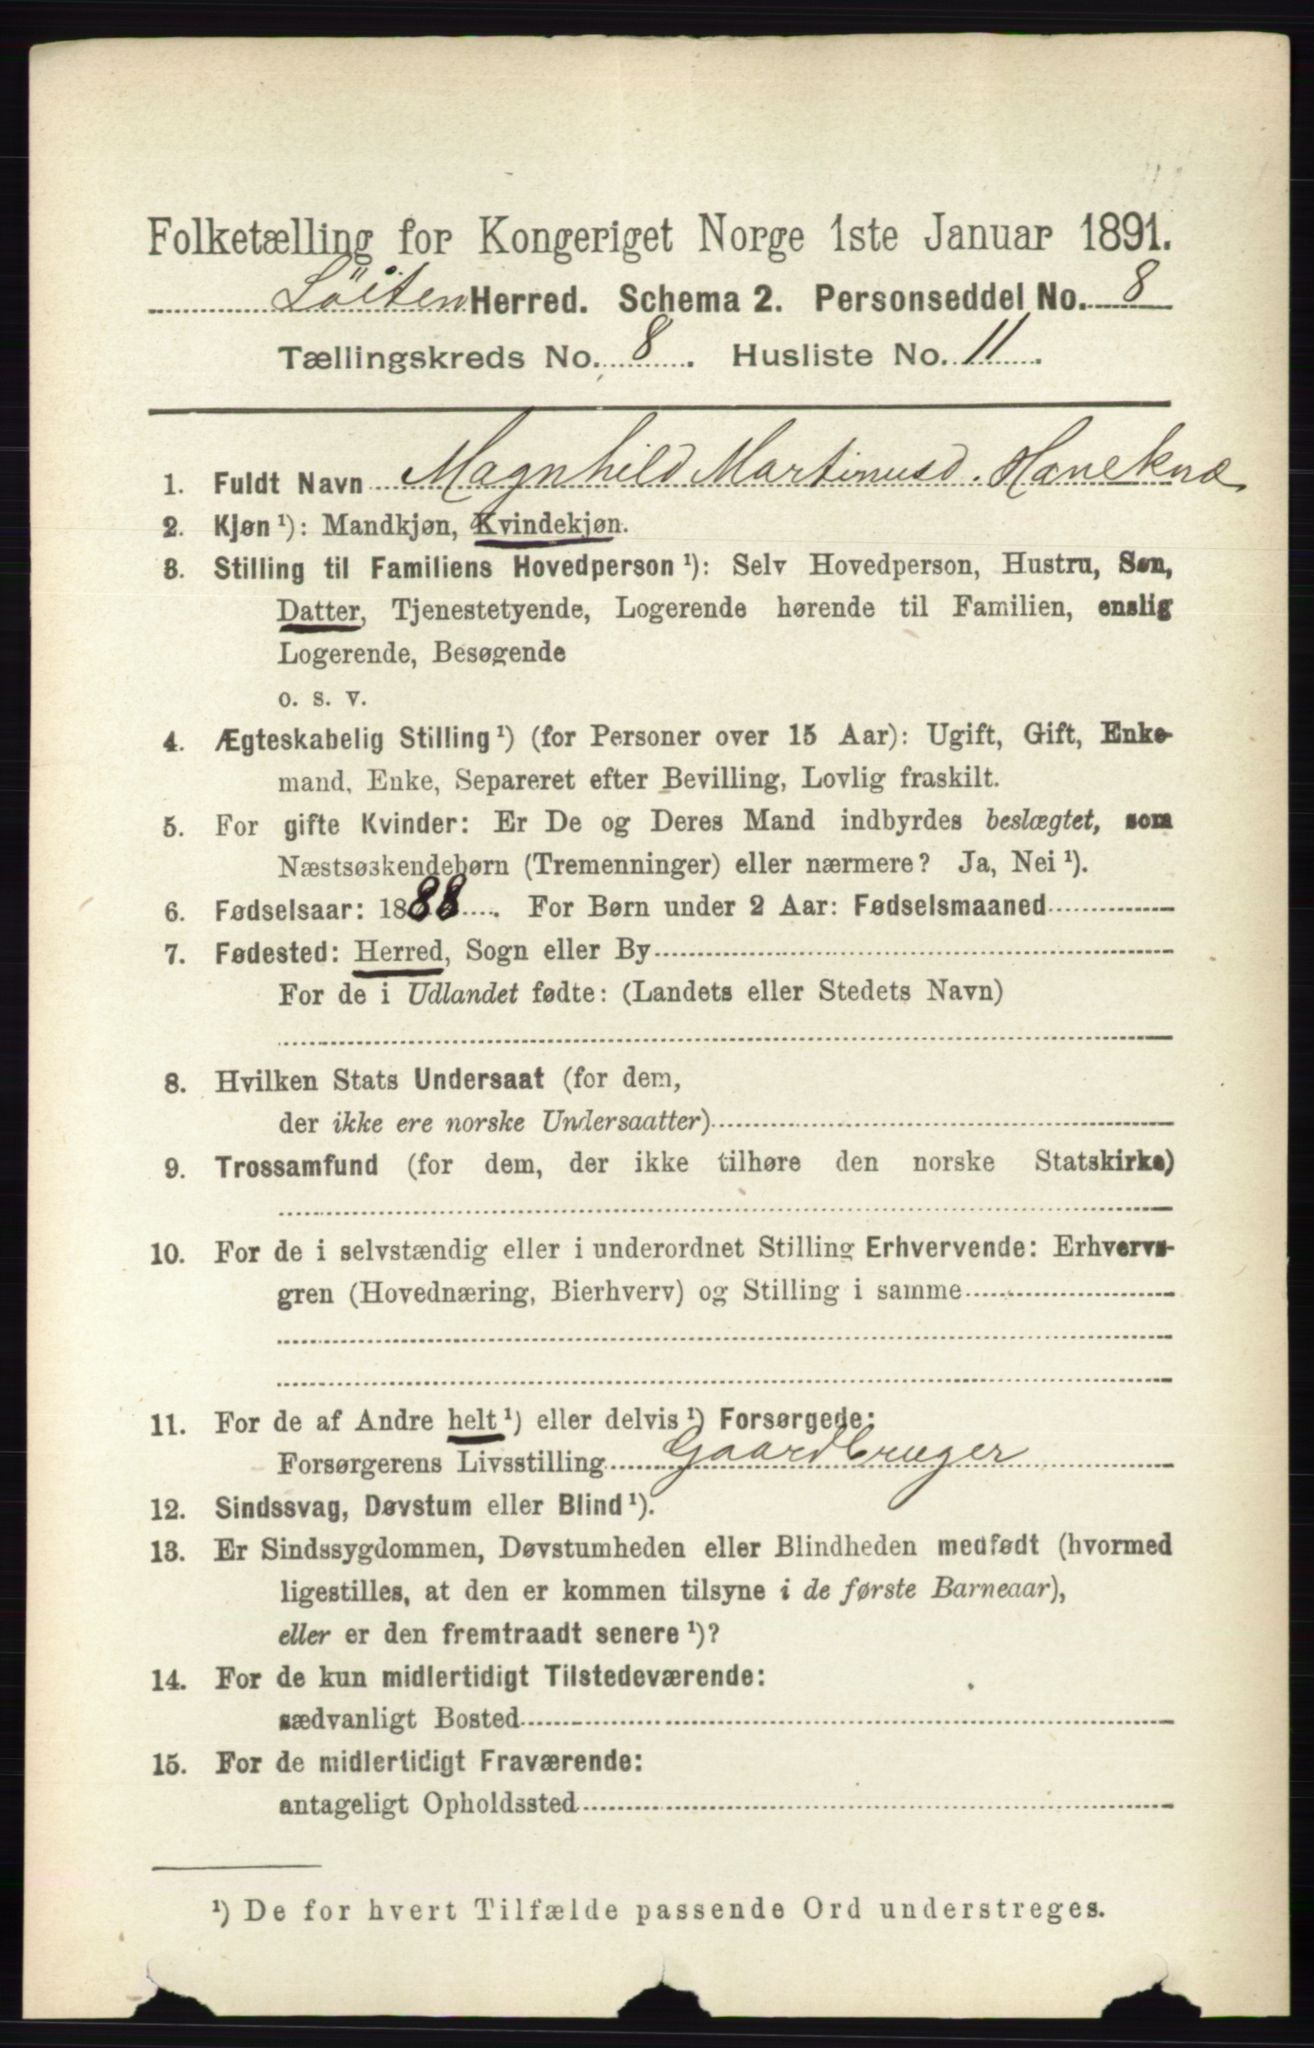 Folketælling for Kongeriget Norge 1ste Januar 1891.
Löiten Herred. Schema 2. Personseddel No. 8
Tællingskreds No. 8. Husliste No. 11.
1. Fuldt Navn Magnhild Martinusd. Haneknæ
2. Kjøn ¹): Mandkjøn, Kvindekjøn.
3. Stilling til Familiens Hovedperson ¹): Selv Hovedperson, Hustru, Søn,
Datter, Tjenestetyende, Logerende hørende til Familien, enslig
Logerende, Besøgende
o. s. v.
4. Ægteskabelig Stilling ¹) (for Personer over 15 Aar): Ugift, Gift, Enke-
mand, Enke, Separeret efter Bevilling, Lovlig fraskilt.
5. For gifte Kvinder: Er De og Deres Mand indbyrdes beslægtet, som
Næstsøskendebørn (Tremenninger) eller nærmere? Ja, Nei ¹).
6. Fødselsaar: 1888. For Børn under 2 Aar: Fødselsmaaned
7. Fødested: Herred, Sogn eller By
For de i Udlandet fødte: (Landets eller Stedets Navn)
8. Hvilken Stats Undersaat (for dem,
der ikke ere norske Undersaatter)
9. Trossamfund (for dem, der ikke tilhøre den norske Statskirke)
10. For de i selvstændig eller i underordnet Stilling Erhvervende: Erhvervs-
gren (Hovednæring, Bierhverv) og Stilling i samme
11. For de af Andre helt ¹) eller delvis ¹) Forsørgede:
Forsørgerens Livsstilling Gaardbruger
12. Sindssvag, Døvstum eller Blind ¹).
13. Er Sindssygdommen, Døvstumheden eller Blindheden medfødt (hvormed
ligestilles, at den er kommen tilsyne i de første Barneaar),
eller er den fremtraadt senere ¹)?
14. For de kun midlertidigt Tilstedeværende:
sædvanligt Bosted
15. For de midlertidigt Fraværende:
antageligt Opholdssted
¹) De for hvert Tilfælde passende Ord understreges.